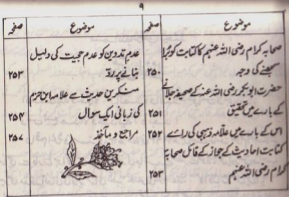 ۹
موضوع
صفحہ
صحابہ کرام رضی اللہ عنہم کا کتابت کو بُرا
سمجھنے کی وجہ
۲۵۰
حضرت ابوبکر رضی اللہ عنہ کے صحیفہ جلانے
کے بارے میں تحقیق
۲۵۱
اس کے بارے میں علامہ ذہبی کی رائے
۲۵۲
کتابت احادیث کے جواز کے قائل صحابہ
کرام رضی اللہ عنہم
۲۵۳
موضوع
صفحہ
عدم تدوین کو عدم حجیت کی دلیل
بنانے پر رد
۲۵۳
منکرین حدیث سے علامہ ابن حزم
کی زبانی ایک سوال
۲۵۴
مراجع و مآخذ
۲۵۷